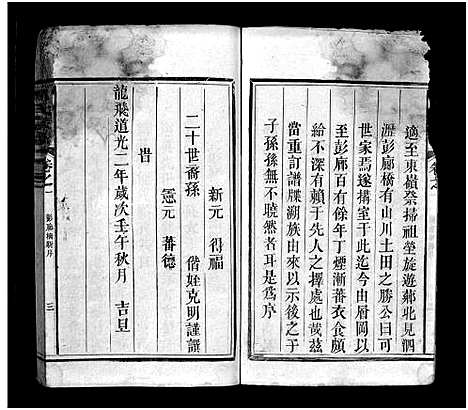 適至東嶺祭掃祖塋旋遊鄰北見泗
瀝彭廊橋有山川土田之勝公曰可
世家焉遂搆室于此迄今由厝岡以
至彭廊百有餘年丁煙漸蕃衣食頗
給不深有賴于先人之擇處也哉茲
當重訂譜牒溯族由來以示後之子
子孫孫無不曉然者耳是為序
新元 得福
二十世裔孫 偕姪克明謹譔
憲元 蕃德
旹
龍飛道光二年歲次壬午秋月 吉旦
卷之一
彭廊橋新序
三